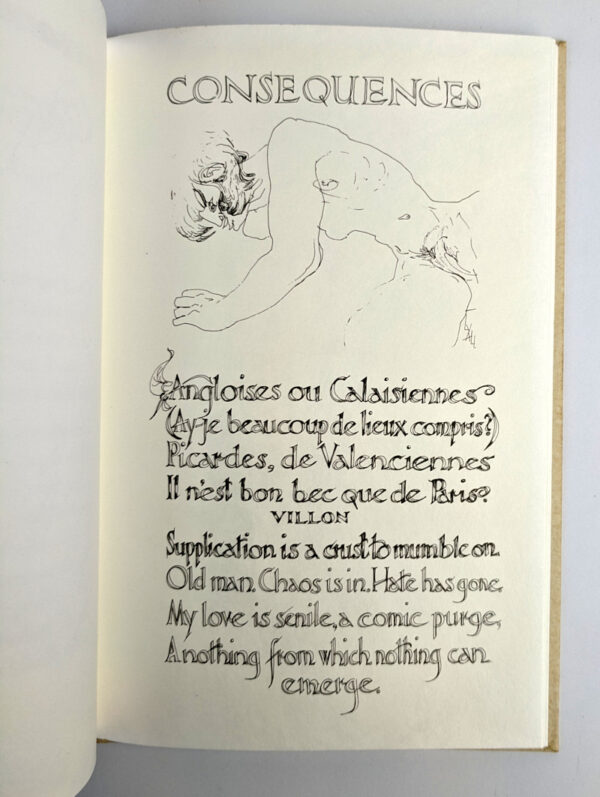 CONSEQUENCES
Angloises ou Calaisiennes
(Ay je beaucoup de lieux compris?)
Picardes, de Valenciennes
Il n'est bon bec que de Paris?
VILLON
Supplication is a crust to mumble on.
Old man. Chaos is in. Hate has gone.
My love is senile, a comic purge,
A nothing from which nothing can
emerge.